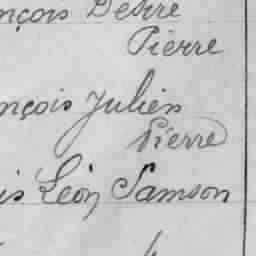 nçois Désiré
Pierre
nçois Julien
Pierre
is Léon Samson